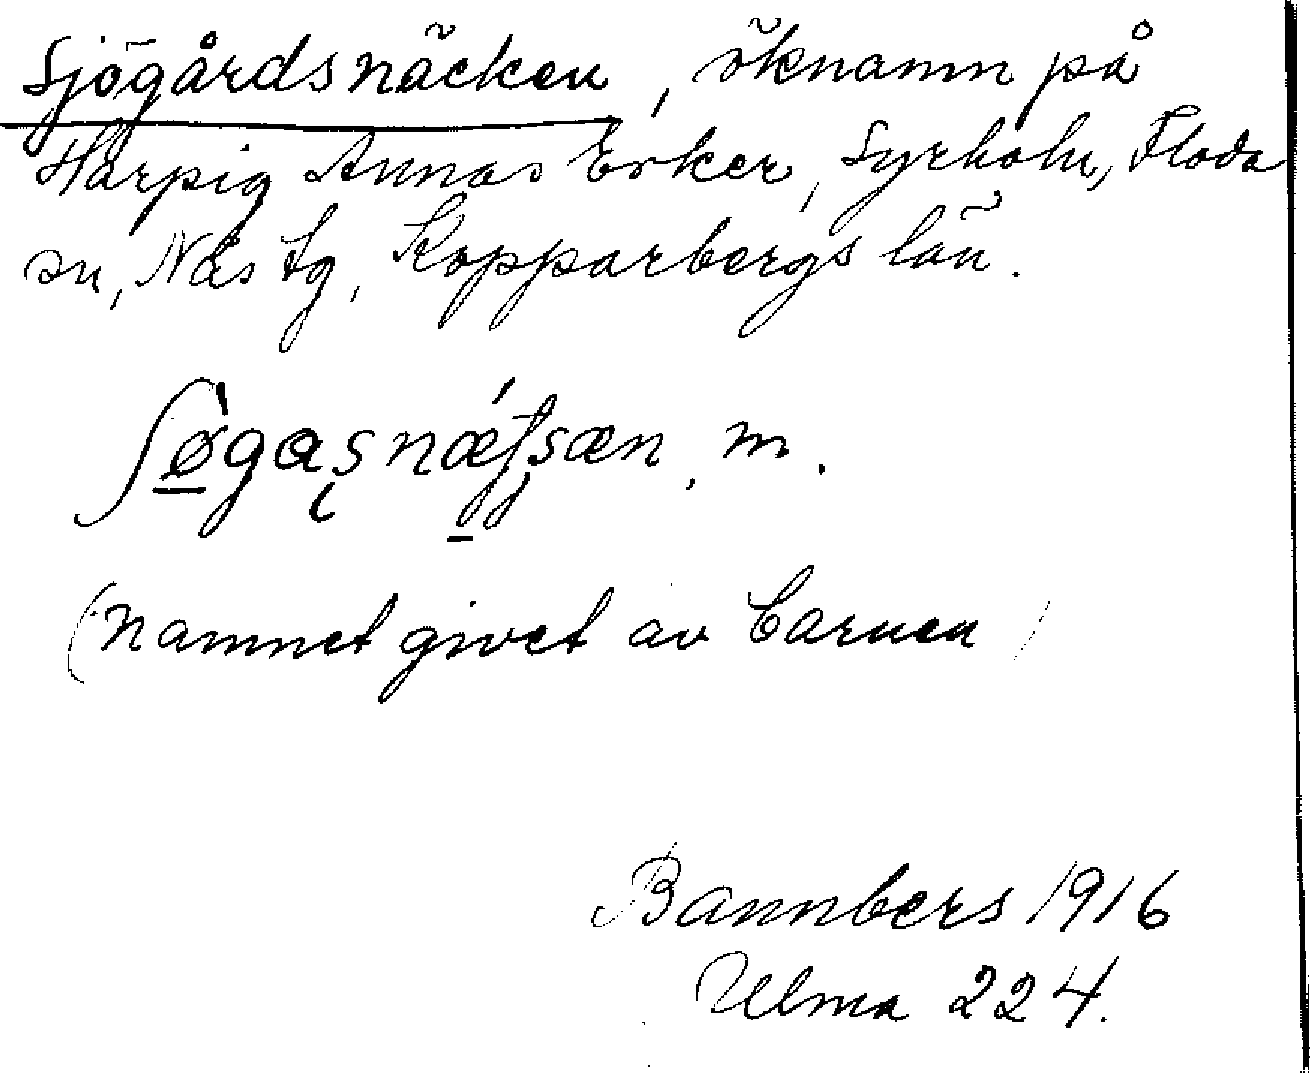 Sjögårdsnäcken, öknamn på
Harpig Annas Erker, Syrholn, Floda
sn, Nås tg, Kopparbergs län.
m.
(namnet givet av Carmen)
Bannbers 1916
Ulma 224.